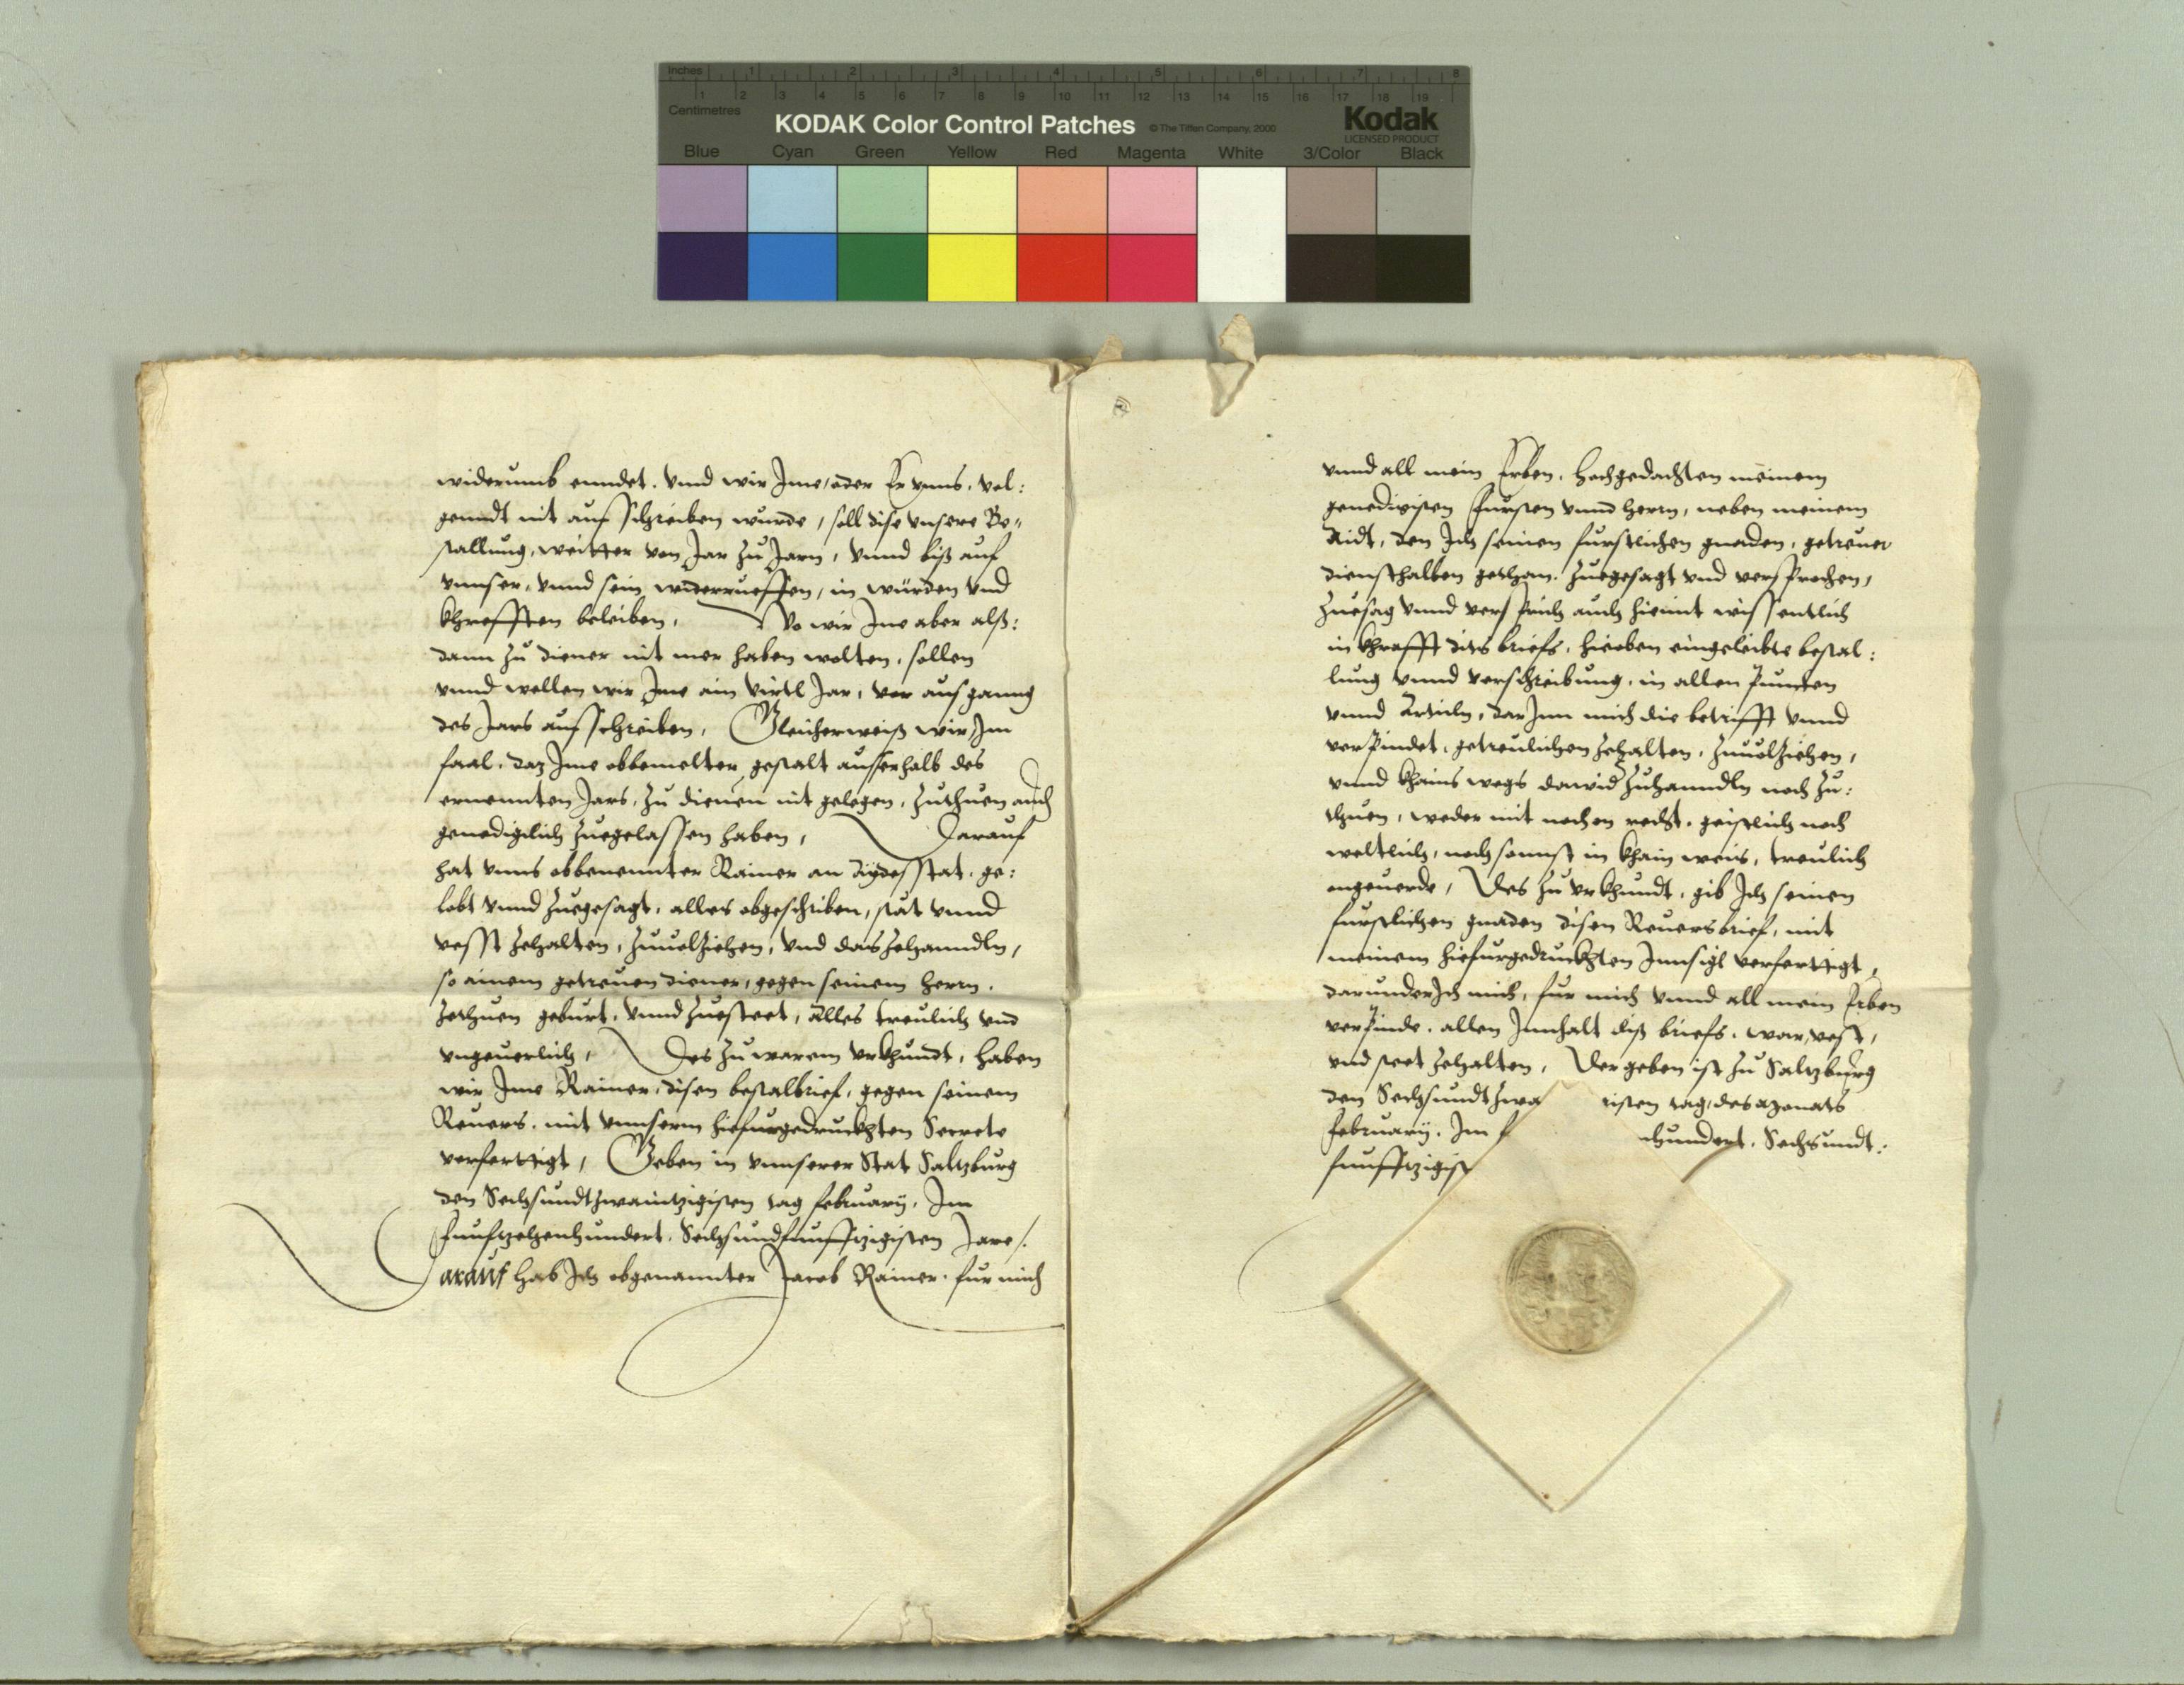 Inches 1 2 3 4 5 6 7 8
1 2 3 4 5 6 7 8 9 10 11 12 13 14 15 16 17 18 19
Centimetres
KODAK Color Control Patches © The Tiffen Company, 2000 Kodak
LICENSED PRODUCT
Blue Cyan Green Yellow Red Magenta White 3/Color Black
widerumb enndet. Vnnd wir Ime, oder Er vnns, vol:
genndt nit aufschreiben wurde, soll dise vnsere Be„
stallung, weitter von Jar zu Jarn, vnnd biß auf
vnnser, vnnd sein widerrueffen, in würden vnd
khrefften beleiben, Wo wir Ime aber alß:
dann zu diener nit mer haben wolten, sollen
vnnd wellen wir Ime ain virtl Jar, vor ausganng
des Jars aufschreiben, Gleicherweiß wir Im
faal, daz Ime obbemelter gestalt ausserhalb des
ernennten Jars, zu dienen nit gelegen, zuthuen auch
genedigclich zuegelassen haben, Darauf
hat vnns obbenennter Rainer an aydesstat, ge:
lobt vnnd zuegesagt, alles obgeschriben, stät vnnd
vesst zehalten, zuuolziehen, vnd das zehanndln,
so ainem getreuen diener, gegen seinem herrn,
zethuen geburt, vnnd zuesteet, Alles treulich vnd
vngeuerlich, Des zu warem vrkhundt, haben
wir Ime Rainer, disen bestalbrief, gegen seinem
Reuers, mit vnnserm hiefurgedruckhten Secrete
verferttigt, Geben in vnnserer Stat Saltzburg
den Sechsundtzwaintzigisten tag february, Im
funftzehenhundert, Sechsundfunfftzigisten Jare /.
Darauf hab Ich obgenannter Jacob Rainer, fur mich
vnnd all mein Erben, hochgedachten meinem
genedigisten Fursten vnnd herrn, neben meinem
Aidt, den Ich seinen furstlichen gnaden, getreuer
diensthalben gethan, zuegesagt vnd versprochen,
zuesag vnnd versprich auch hiemit wissentlich
in khrafft dits briefs, hieoben eingeleibte bestal:
lung vnnd verschreibung, in allen Puncten
vnnd Articln, dar Jnn mich die betrifft vnnd
verpindet, getreulichen zehalten, zuuolziehen,
vnnd khains wegs dawid zuhanndln noch zu:
thuen, weder mit noch on recht, geistlich noch
weltlich, noch sonnst in khain weis, treulich
ongeuerde, Des zu vrkhundt, gib Ich seinen
furstlichen gnaden disen Reuersbrief, mit
meinem hiefurgedruckhten Innsigl verferttigt,
darunder Ich mich, fur mich vnnd all mein Erben
verpinde, allen Innhalt diß briefs, war, vesst,
vnd steet zehalten, Der geben ist zu Saltzburg
den Sechsundtzwa isten tag, des Monats
february, Im f nhundert, Sechsundt:
funfftzigist